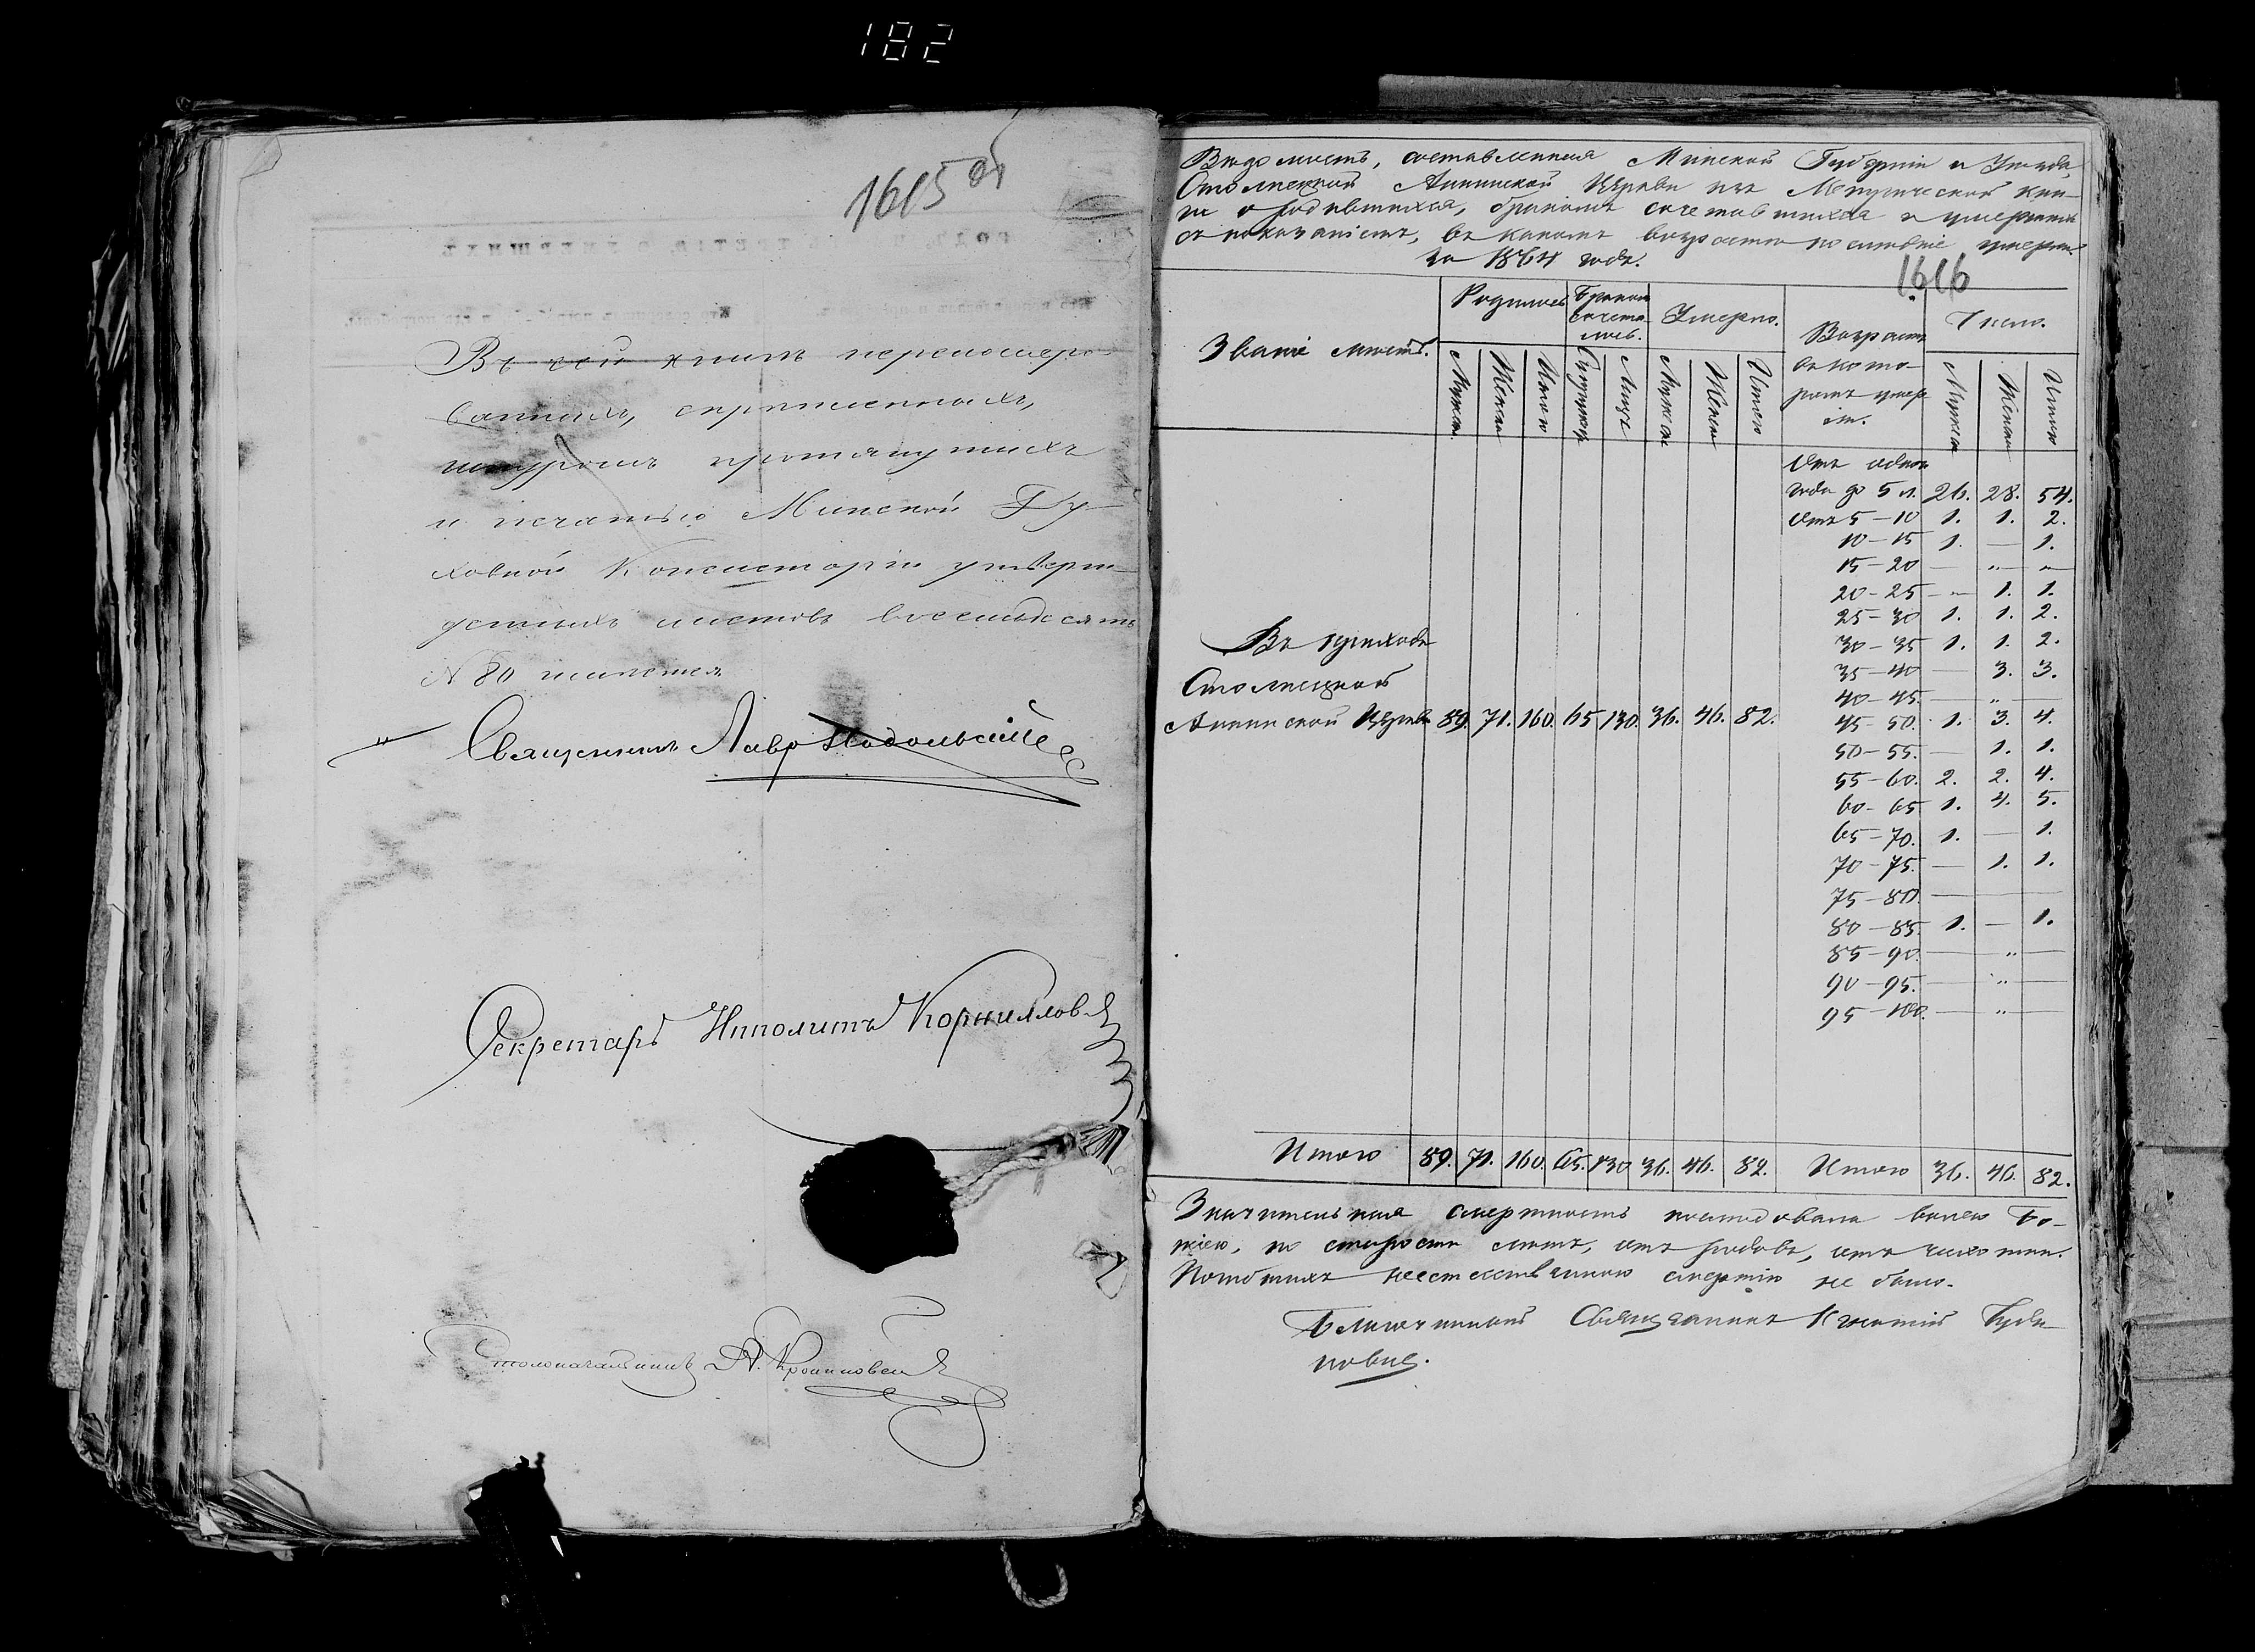 182
1615 об
Въ сей книгѣ перенумеро-
ванныхъ, скрѣпленныхъ,
шнуромъ протянутыхъ
и печатью Минской Ду-
ховной Консисторіи утверж-
денныхъ листовъ восемьдесятъ
№ 80 имѣется
Священникъ Лавр Подольскій
Секретарь Ипполитъ Корнилов
Столоначальникъ
Вѣдомость, составленная Минской Губерніи и Уѣзда,
Столпецкой Аннинской Церкви изъ Метрической кни-
ги о родившихся, бракомъ сочетавшихся и умершихъ
съ показаніемъ, въ какомъ возрастѣ послѣдніе умерли.
за 1864 годъ.
1616
Званіе мѣстъ.
Родилось
Бракомъ
сочета-
лось.
Умерло.
Возрастъ
въ кото-
ромъ умер
ли.
Число.
Мужеск
Женск
Итого
Супруж
Лицъ
Мужеск
Женск
Итого
Мужеск
Женск
Итого
Отъ одного
года до 5 л. 26. 28. 54.
Отъ 5-10 1. 1. 2.
10-15 1. — 1.
15-20 — " —
20-25 — 1. 1.
25-30 1. 1. 2.
30-35 1. 1. 2.
35-40 — 3. 3.
40-45. — " —
45-50. 1. 3. 4.
50-55. — 1. 1.
55-60. 2. 2. 4.
60-65 1. 4. 5.
65-70. 1. — 1.
70-75. — 1. 1.
75-80. — — —
80-85. 1. — 1.
85-90. — " —
90-95. — " —
95-100. — " —
Въ приходѣ
Столпецкой
Аннинской Церкви 89. 71. 160. 65 130. 36. 46. 82.
Итого 89. 71. 160. 65. 130 36. 46. 82. Итого 36. 46. 82.
Значительная смертность послѣдовала волею Бо-
жіею, по старости лѣтъ, отъ родовъ, отъ чахотки.
Погибшихъ неестественною смертію не было.
Благочинный Священникъ